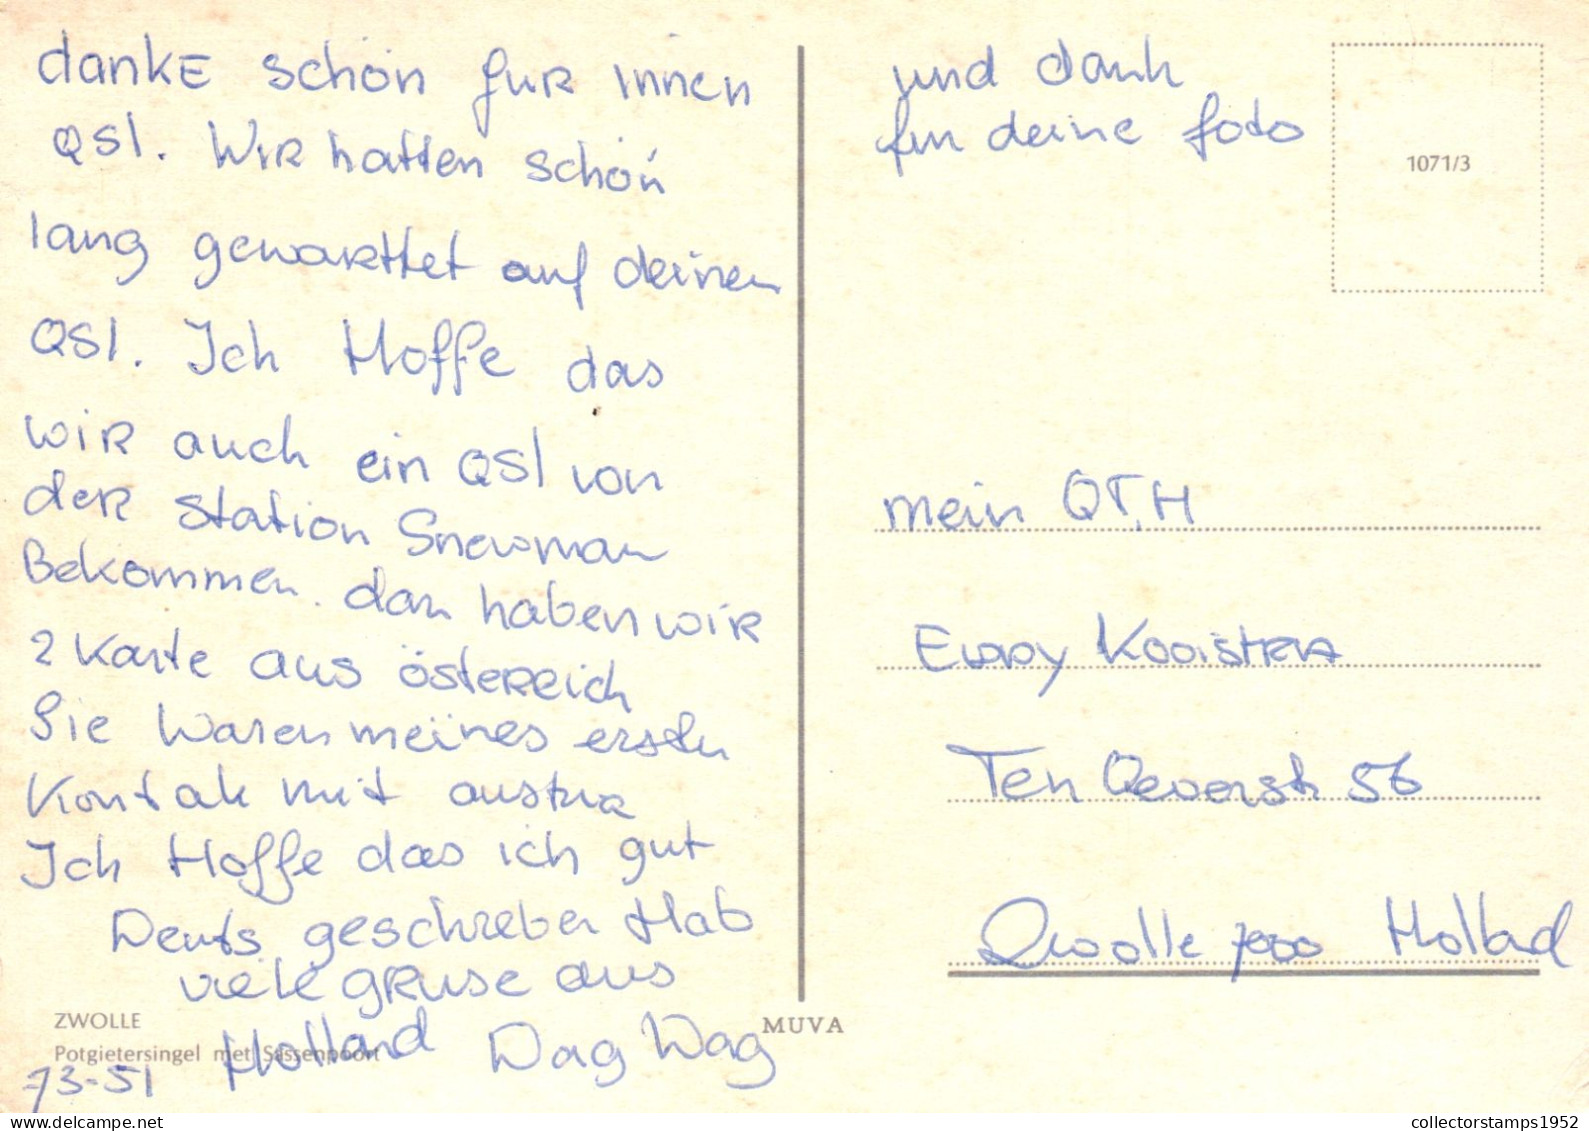 danke schön fur innen
QSl. Wir hatten schön
lang gewarttet auf deinen
QSl. Ich Hoffe das
wir auch ein QSl von
der station Snewman
Bekommen. dan haben wir
2 Karte aus österreich
Sie waren meines ersten
Kontak mit
Ich Hoffe das ich gut
Deuts geschreben Hab
viele gruse aus
Holland Dag Dag
73-51
ZWOLLE
Potgietersingel met Sassenpoort
MUVA
und dank
fur deine foto
1071/3
mein QTH
Kooistra
Ten 56
Zwolle Holland
collectorstamps1952